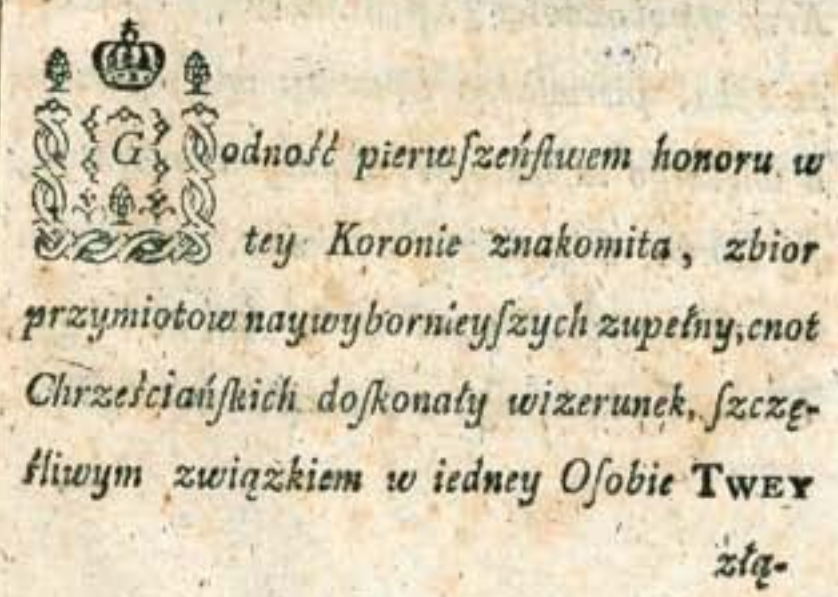 Godność pierwſzeńſtwem honoru w
tey Koronie znakomita, zbior
przymiotow naywybornieyſzych zupełny, cnot
Chrześciańſkich doſkonały wizerunek, ſzczę-
śliwym związkiem w iedney Oſobie TWEY
złą-